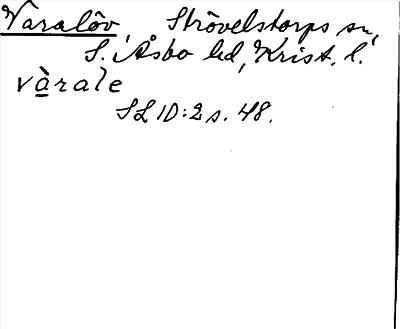 Varalöv, Strövelstorps sn,
S. Åsbo hd, Krist. l.
vàrale
SL 1D:2 s. 48.